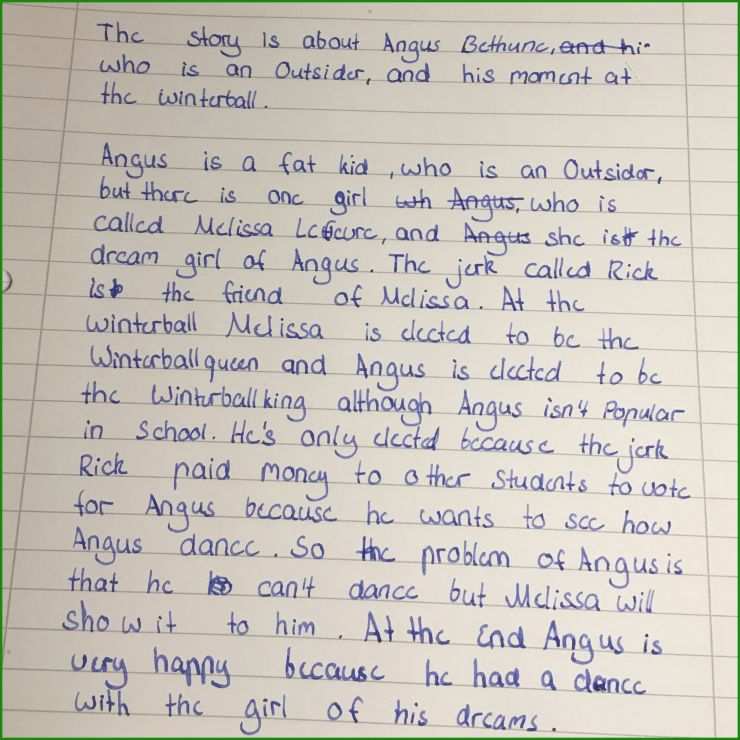 The story is about Angus Bethune, and hi-
who is an Outsider, and his moment at
the winterball.
Angus is a fat kid, who is an Outsider,
but there is one girl wh Angus, who is
called Melissa Lefeure, and Angus she is the
dream girl of Angus. The jerk called Rick
is the friend of Melissa. At the
Winterball Melissa is elected to be the
Winterballqueen and Angus is elected to be
the Winterballking although Angus isn't Popular
in School. He's only elected because the jerk
Rick paid money to other Students to vote
for Angus because he wants to see how
Angus dance. So the problem of Angus is
that he can't dance but Melissa will
show it to him. At the End Angus is
very happy because he had a dance
with the girl of his dreams.